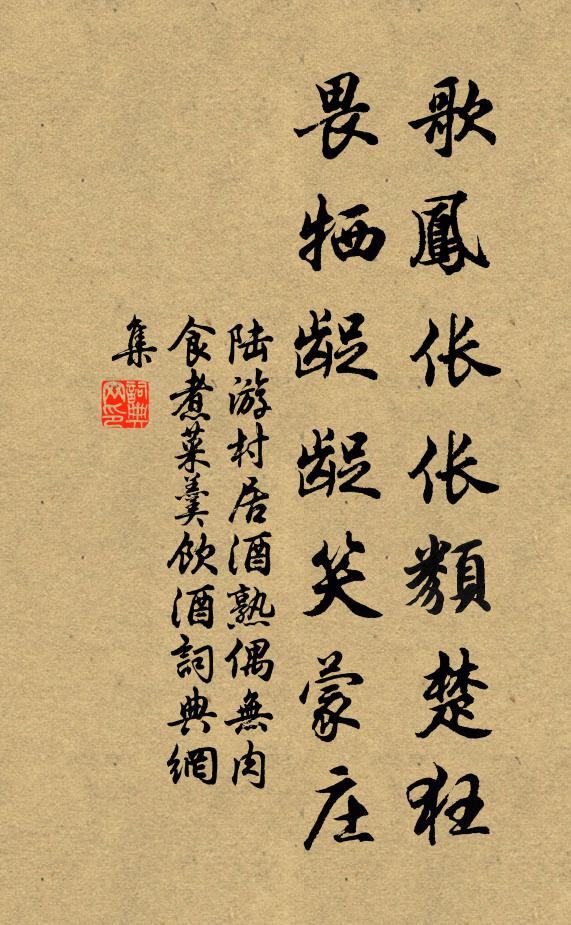 歌鳳伥伥類楚狂
畏牺龊龊笑蒙庄
陆游村居酒熟偶無肉
食煮菜羹飲酒詞典網
集
詞典网印